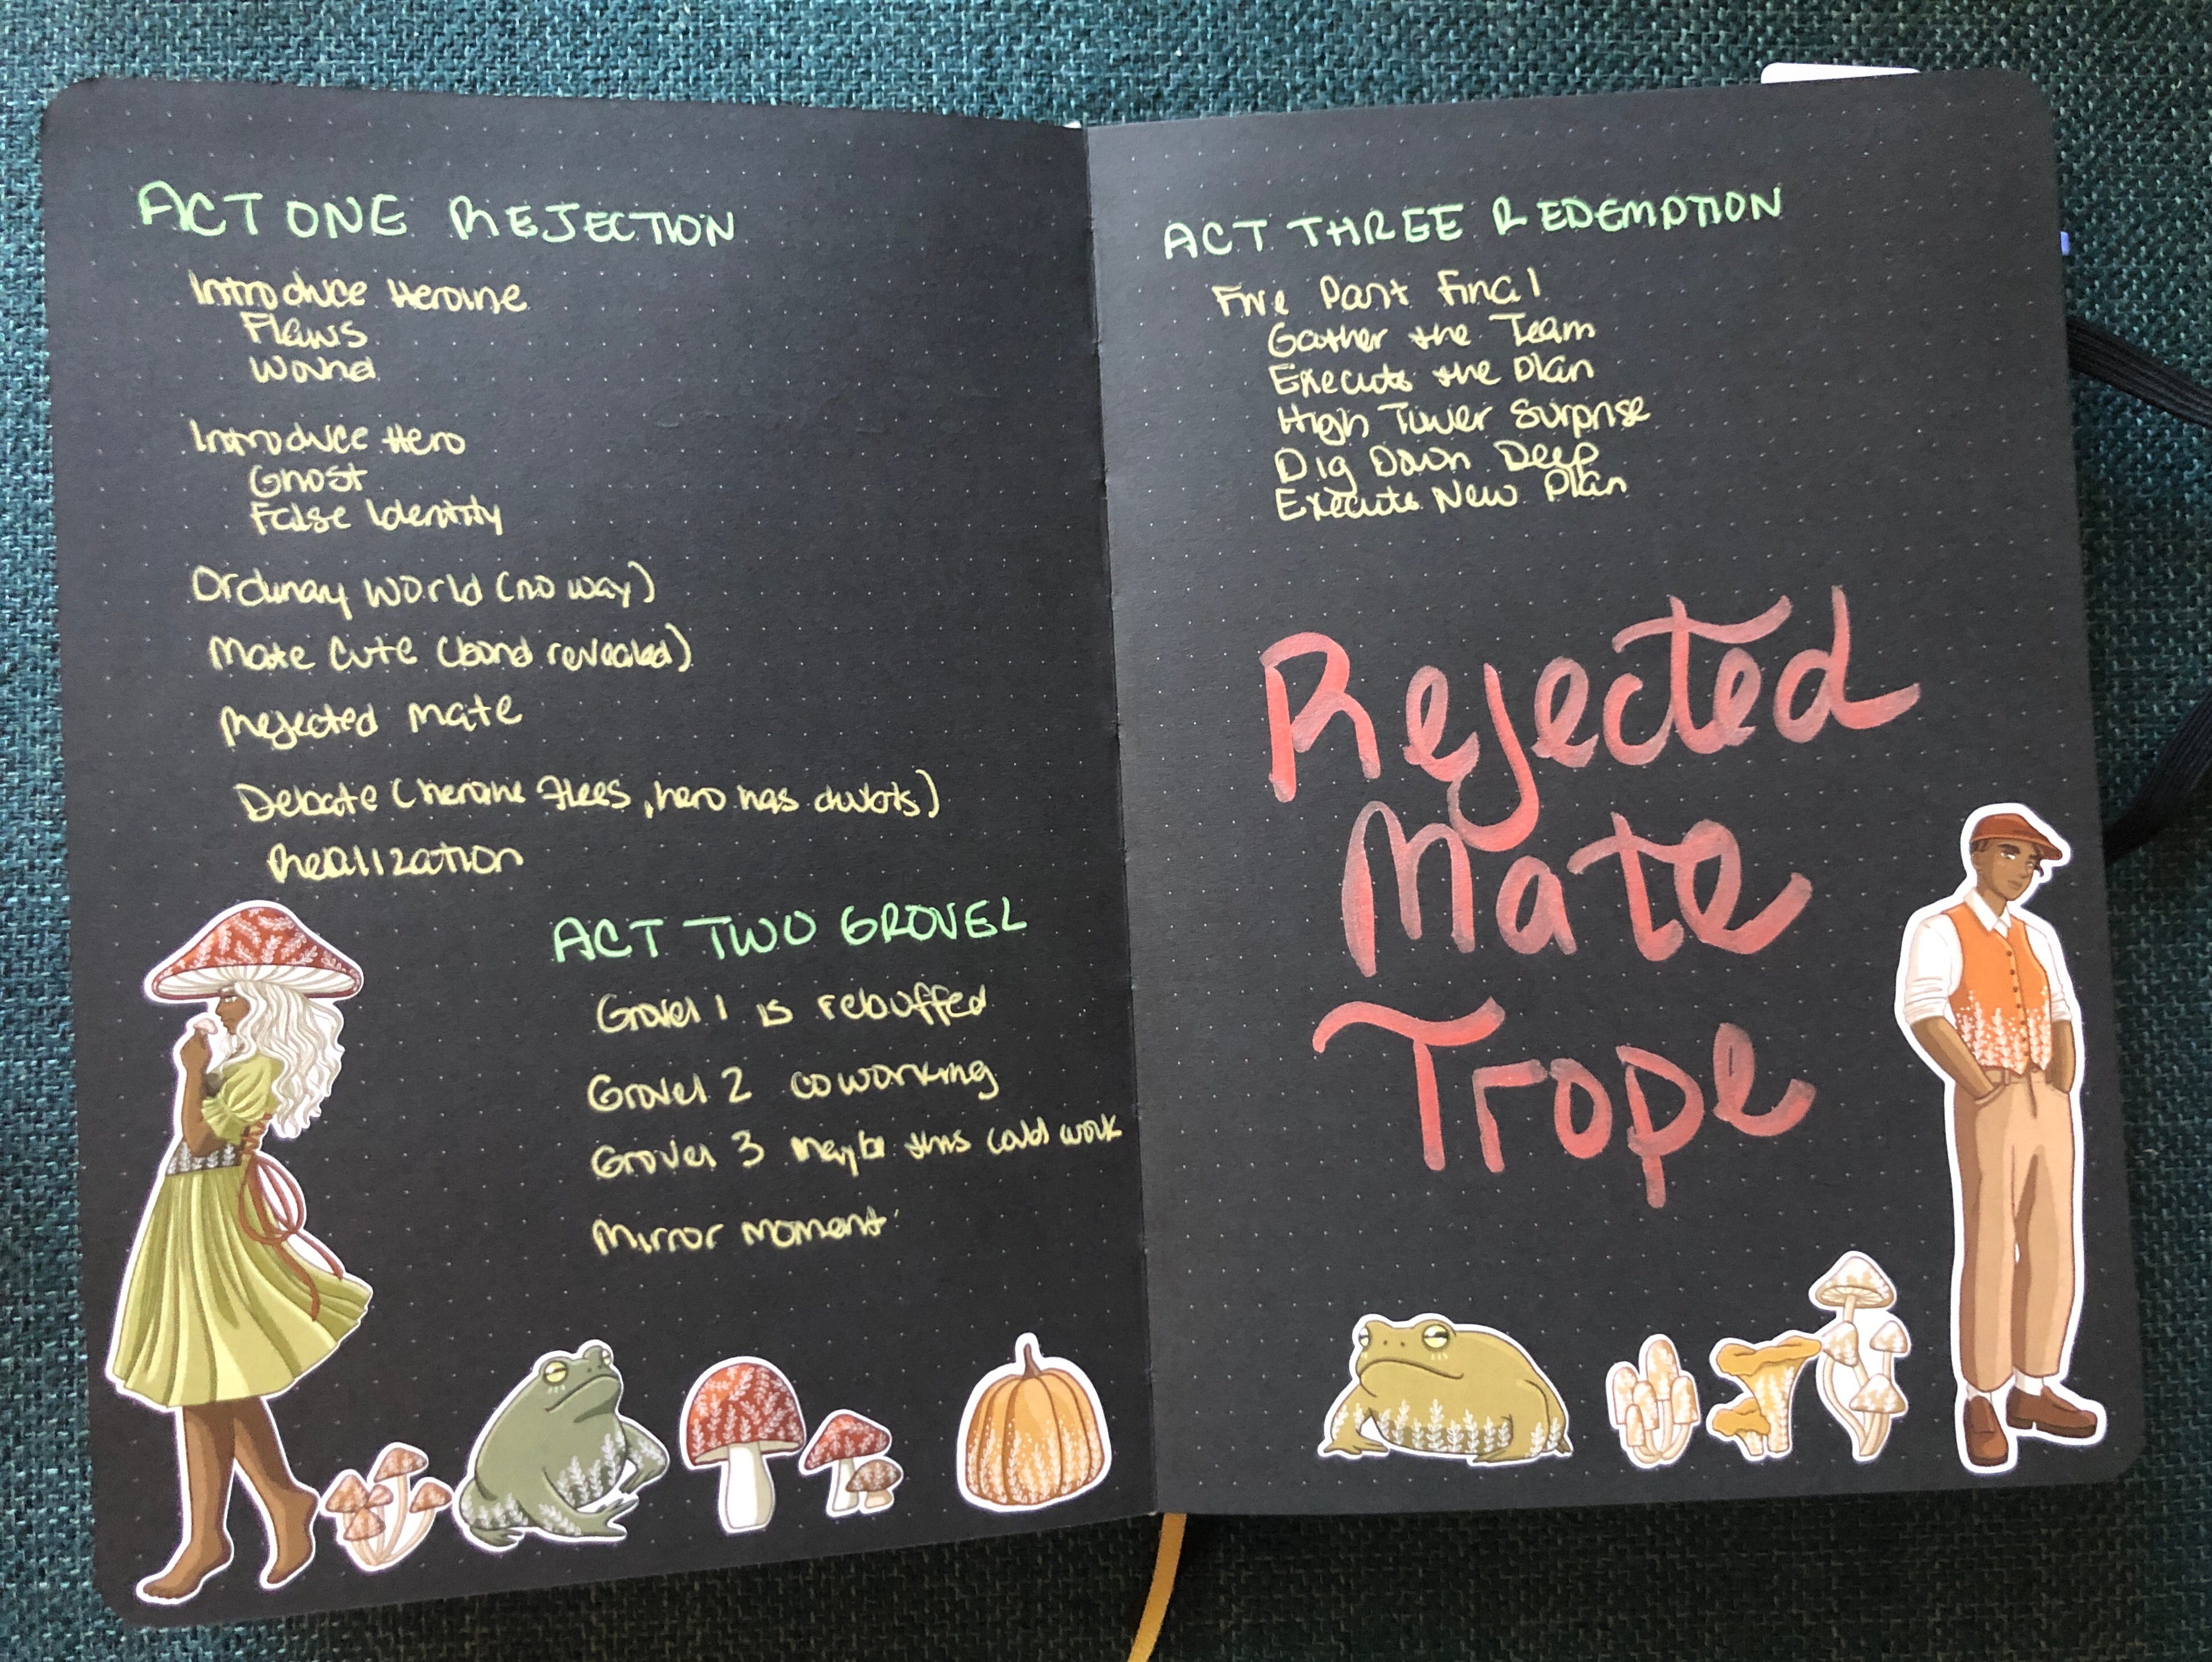 ACT ONE REJECTION
Introduce Heroine
Flaws
Wound
Introduce Hero
Ghost
False Identity
Ordinary World (no way)
Mate Cute (bond revealed)
Rejected Mate
Debate (heroine flees, hero has doubts)
Realization
ACT TWO GROVEL
Grovel 1 is rebuffed
Grovel 2 coworking
Grovel 3 Maybe this could work
Mirror moment
ACT THREE REDEMPTION
Five Part Final
Gather the Team
Execute the Plan
High Tower Surprise
Dig Down Deep
Execute New Plan
Rejected
Mate
Trope